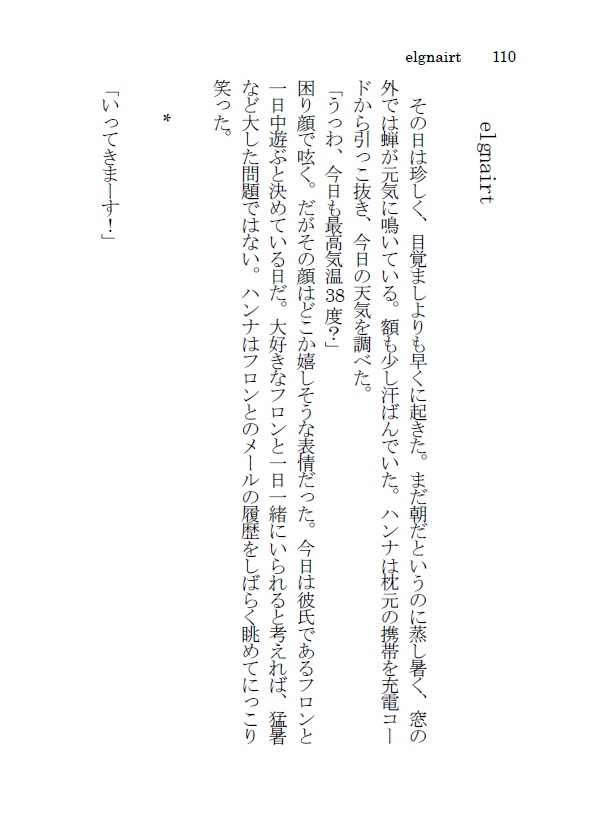 elgnairt 110
elgnairt
その日は珍しく、目覚ましよりも早くに起きた。まだ朝だというのに蒸し暑く、窓の
外では蝉が元気に鳴いている。額も少し汗ばんでいた。ハンナは枕元の携帯を充電コー
ドから引っこ抜き、今日の天気を調べた。
「うっわ、今日も最高気温38度？」
困り顔で呟く。だがその顔はどこか嬉しそうな表情だった。今日は彼氏であるフロンと
一日中遊ぶと決めている日だ。大好きなフロンと一日一緒にいられると考えれば、猛暑
など大した問題ではない。ハンナはフロンとのメールの履歴をしばらく眺めてにっこり
笑った。
*
「いってきまーす！」